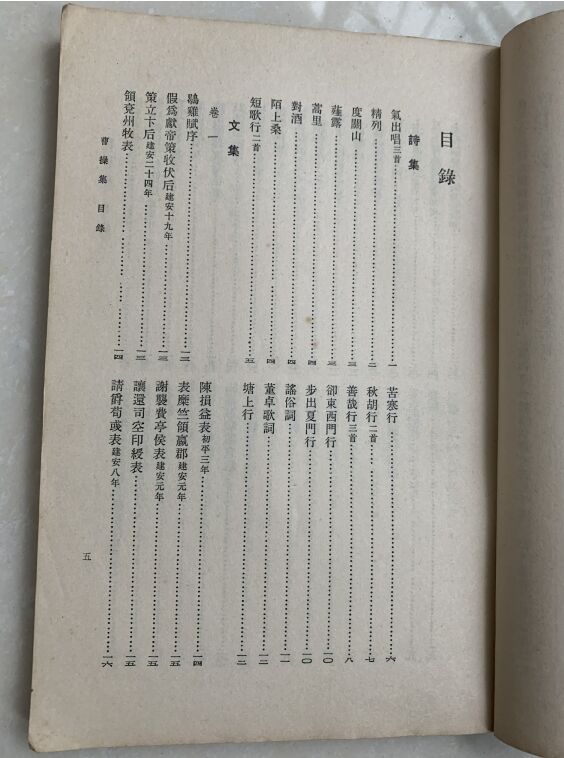 目錄
詩集
氣出唱三首……一
精列……二
度關山……三
薤露……三
蒿里……四
對酒……四
陌上桑……四
短歌行二首……五
苦寒行……六
秋胡行二首……七
善哉行三首……八
卻東西門行……一〇
步出夏門行……一〇
謠俗詞……一一
董卓歌詞……一二
塘上行……一二
文集
卷一
鶡雞賦序……一三
假爲獻帝策收伏后建安十九年……一三
策立卞后建安二十四年……一三
領兗州牧表……一四
陳損益表初平三年……一四
表糜竺領嬴郡建安元年……一五
謝襲費亭侯表建安元年……一五
讓還司空印綬表……一五
請爵荀彧表建安八年……一六
曹操集 目錄
五